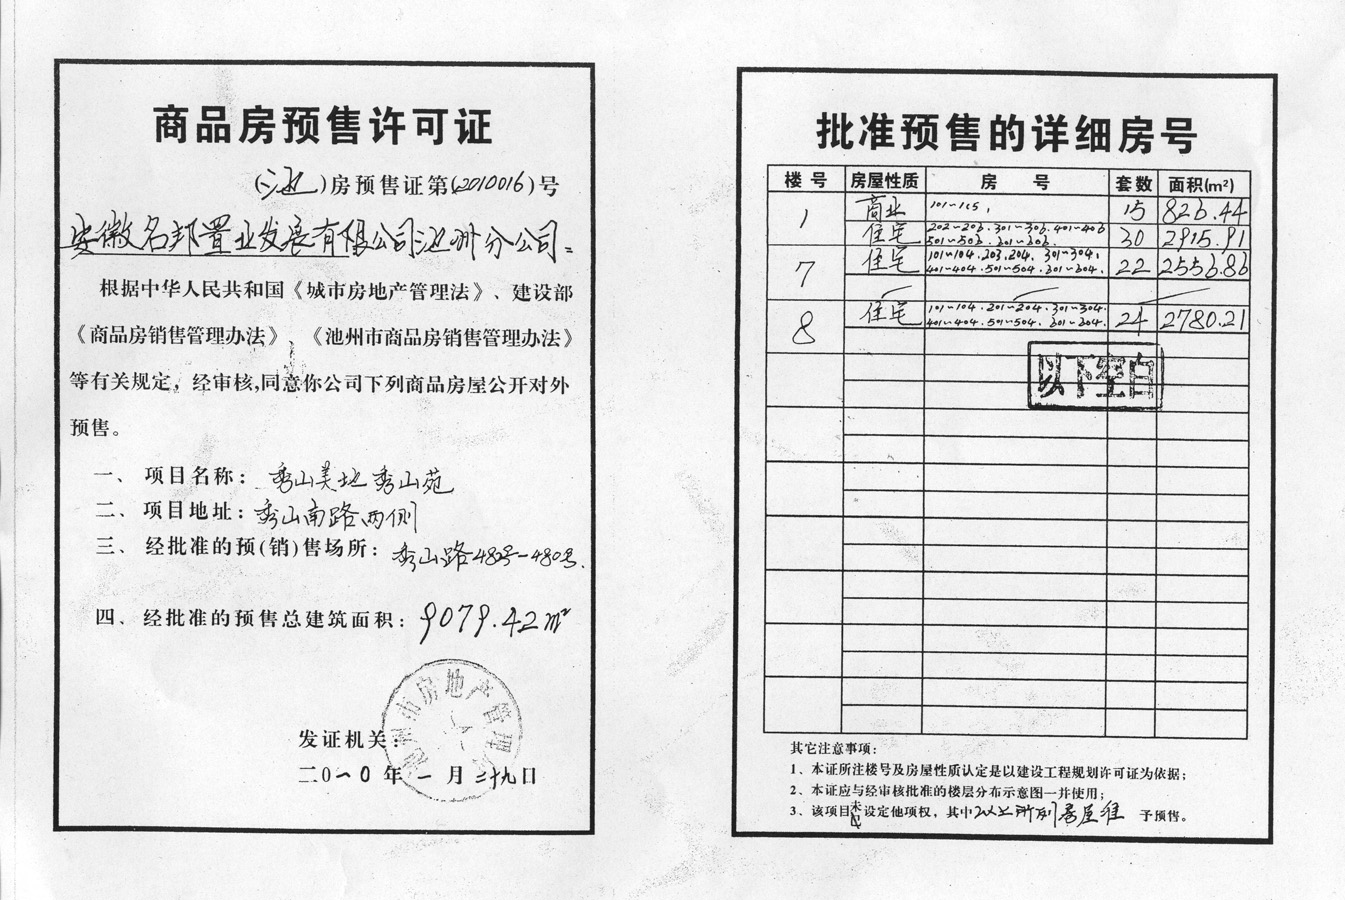 商品房预售许可证
(池)房预售证第(2010016)号
安徽名邦置业发展有限公司池州分公司:
根据中华人民共和国《城市房地产管理法》、建设部
《商品房销售管理办法》、《池州市商品房销售管理办法》
等有关规定，经审核,同意你公司下列商品房屋公开对外
预售。
一、项目名称：秀山美地秀山苑
二、项目地址：秀山南路两侧
三、经批准的预(销)售场所：秀山路482号-480号.
四、经批准的预售总建筑面积：9079.42m²
池州市房地产管理局
发证机关：
二0一0年一月二十九日
批准预售的详细房号
楼号 房屋性质 房号 套数 面积(m²)
1 商业 101~115, 15 826.44
住宅 202~206.301~306.401~406 501~506.601~606. 30 2915.91
7 住宅 101~104.203.204.301~304. 401~404.501~504.601~604. 22 2556.86
8 住宅 101~104.201~204.301~304. 401~404.501~504.601~604. 24 2780.21
以下空白
其它注意事项：
1、本证所注楼号及房屋性质认定是以建设工程规划许可证为依据；
2、本证应与经审核批准的楼层分布示意图一并使用；
3、该项目未已设定他项权，其中以上所列房屋准予预售。